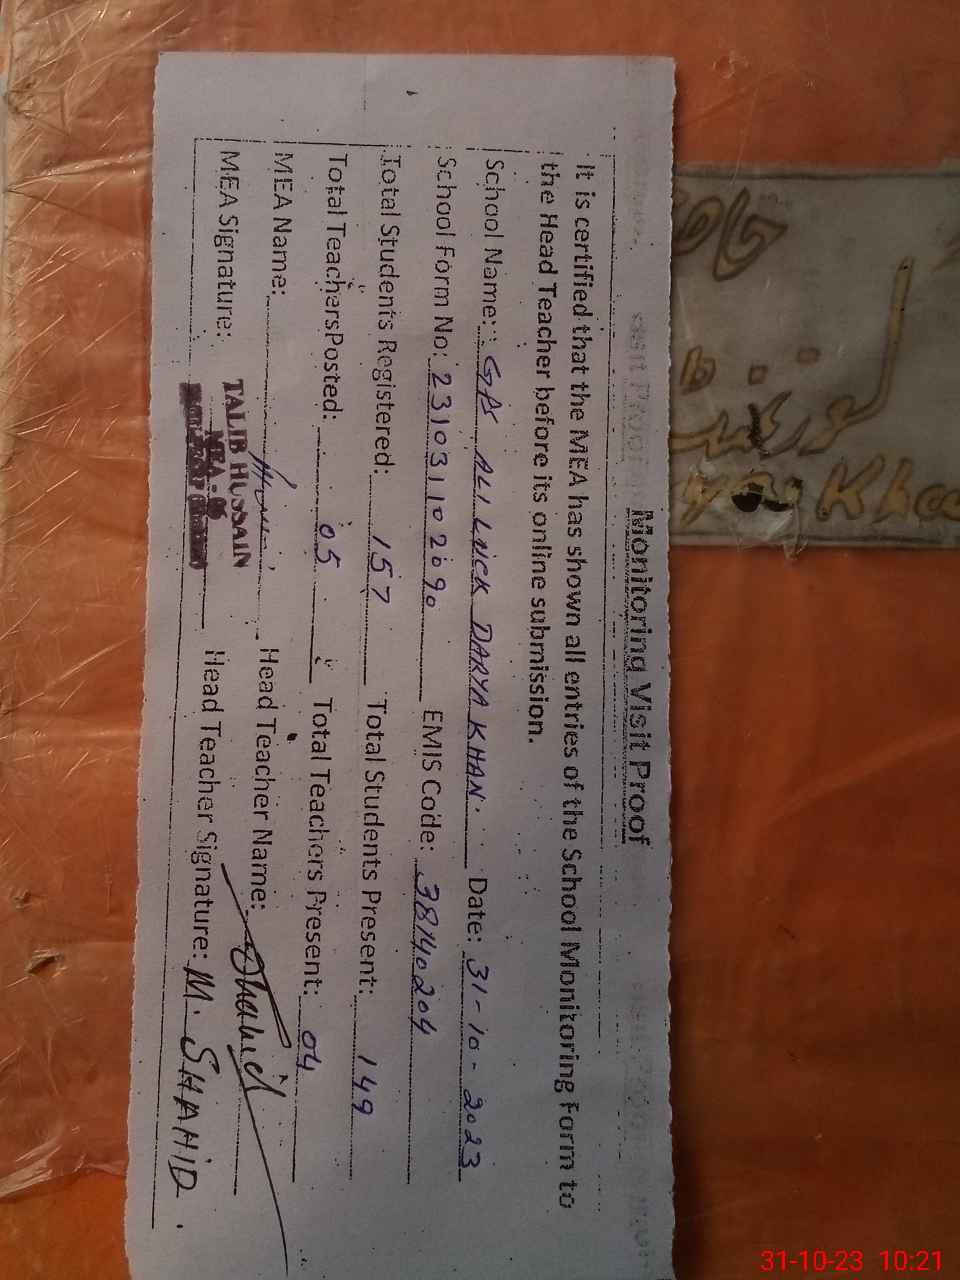 Monitoring Visit Proof
It is certified that the MEA has shown all entries of the School Monitoring Form to
the Head Teacher before its online submission.
School Name: GPS ALI LUCK DARYA KHAN. Date: 31-10-2023
School Form No: 231031102090 EMIS Code: 38140204
Total Students Registered: 157 Total Students Present: 149
Total Teachers Posted: 05 Total Teachers Present: 04
MEA Name: Head Teacher Name: Shahid
MEA Signature: TALIB HUSSAIN Head Teacher Signature: M. SHAHID.
MEA-06
گورنمنٹ
Khan
31-10-23 10:21